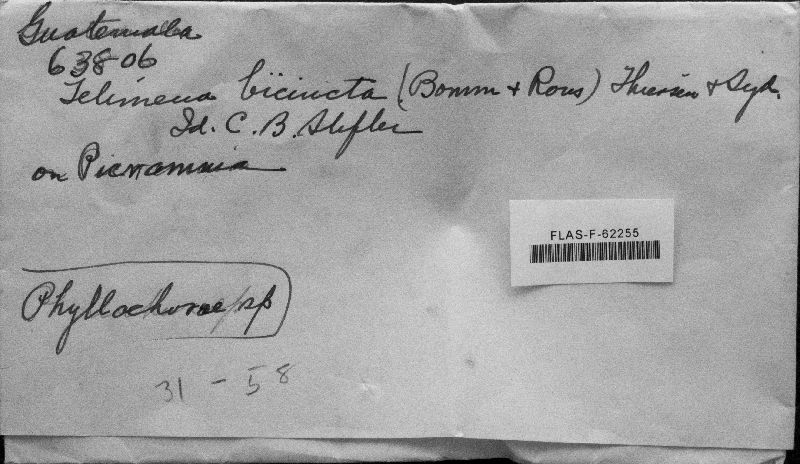 Guatemala
63806
Telimena bicincta (Bomm + Rous) Theissen + Syd.
Id. C. B. Slifler
on Picramnia
FLAS-F-62255
Phyllachorae sp
31 - 58